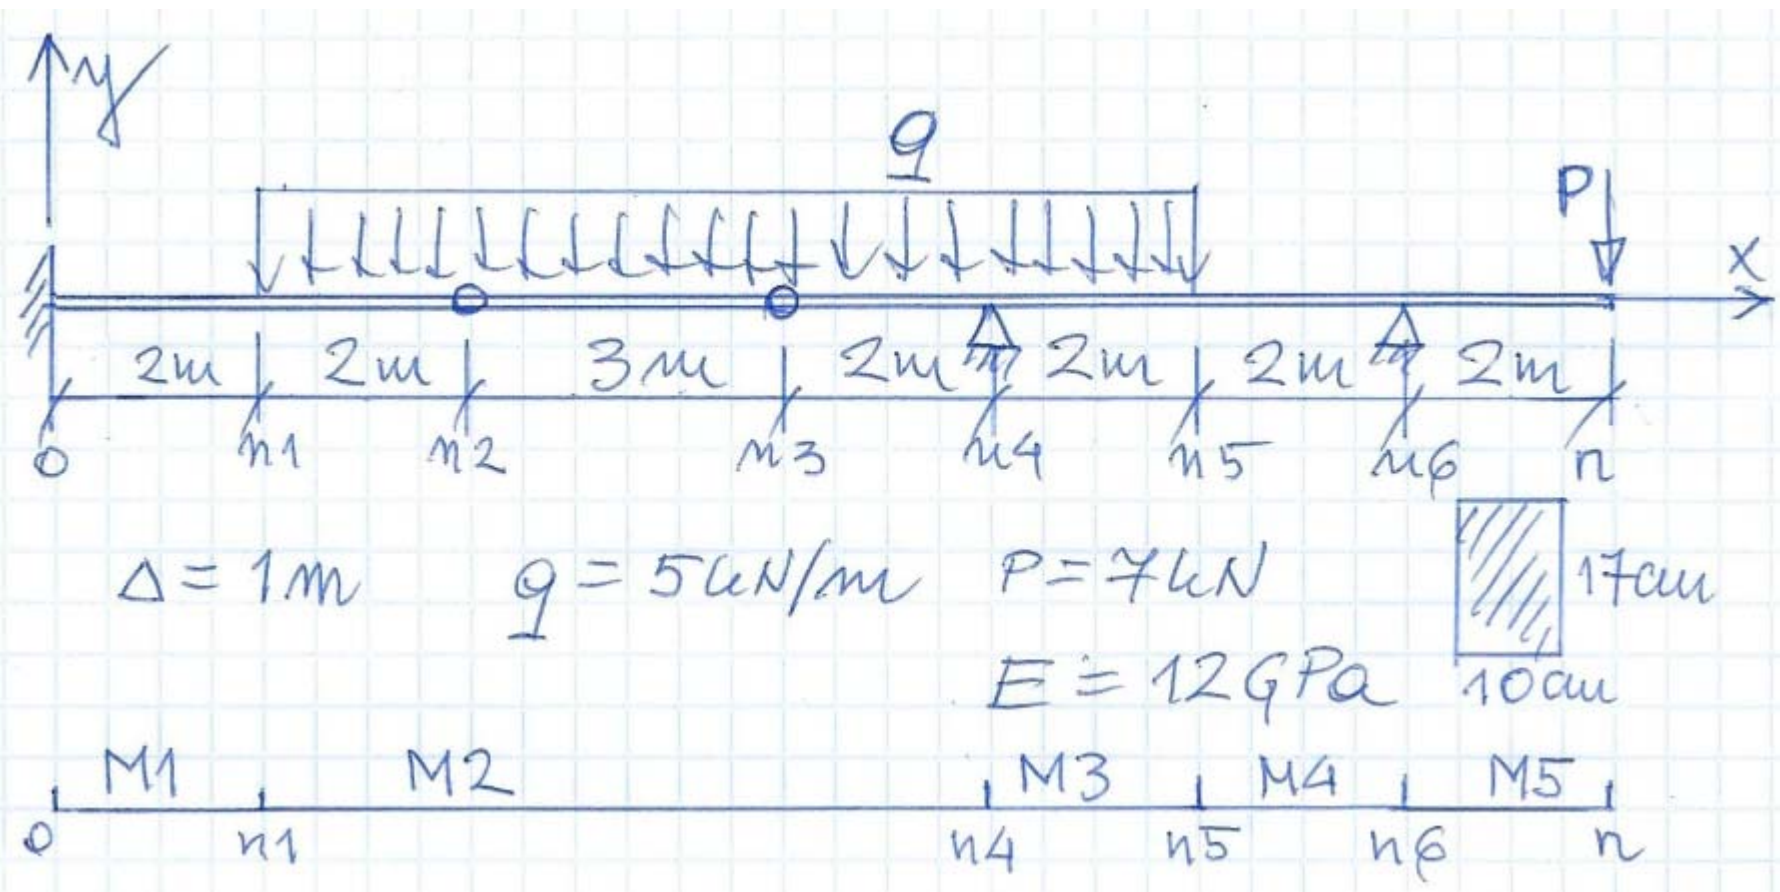 y
q
P
x
2m 2m 3m 2m 2m 2m 2m
0 n1 n2 n3 n4 n5 n6 n
Δ = 1m q = 5kN/m P = 7kN 17cm
E = 12GPa 10cm
M1 M2 M3 M4 M5
0 n1 n4 n5 n6 n